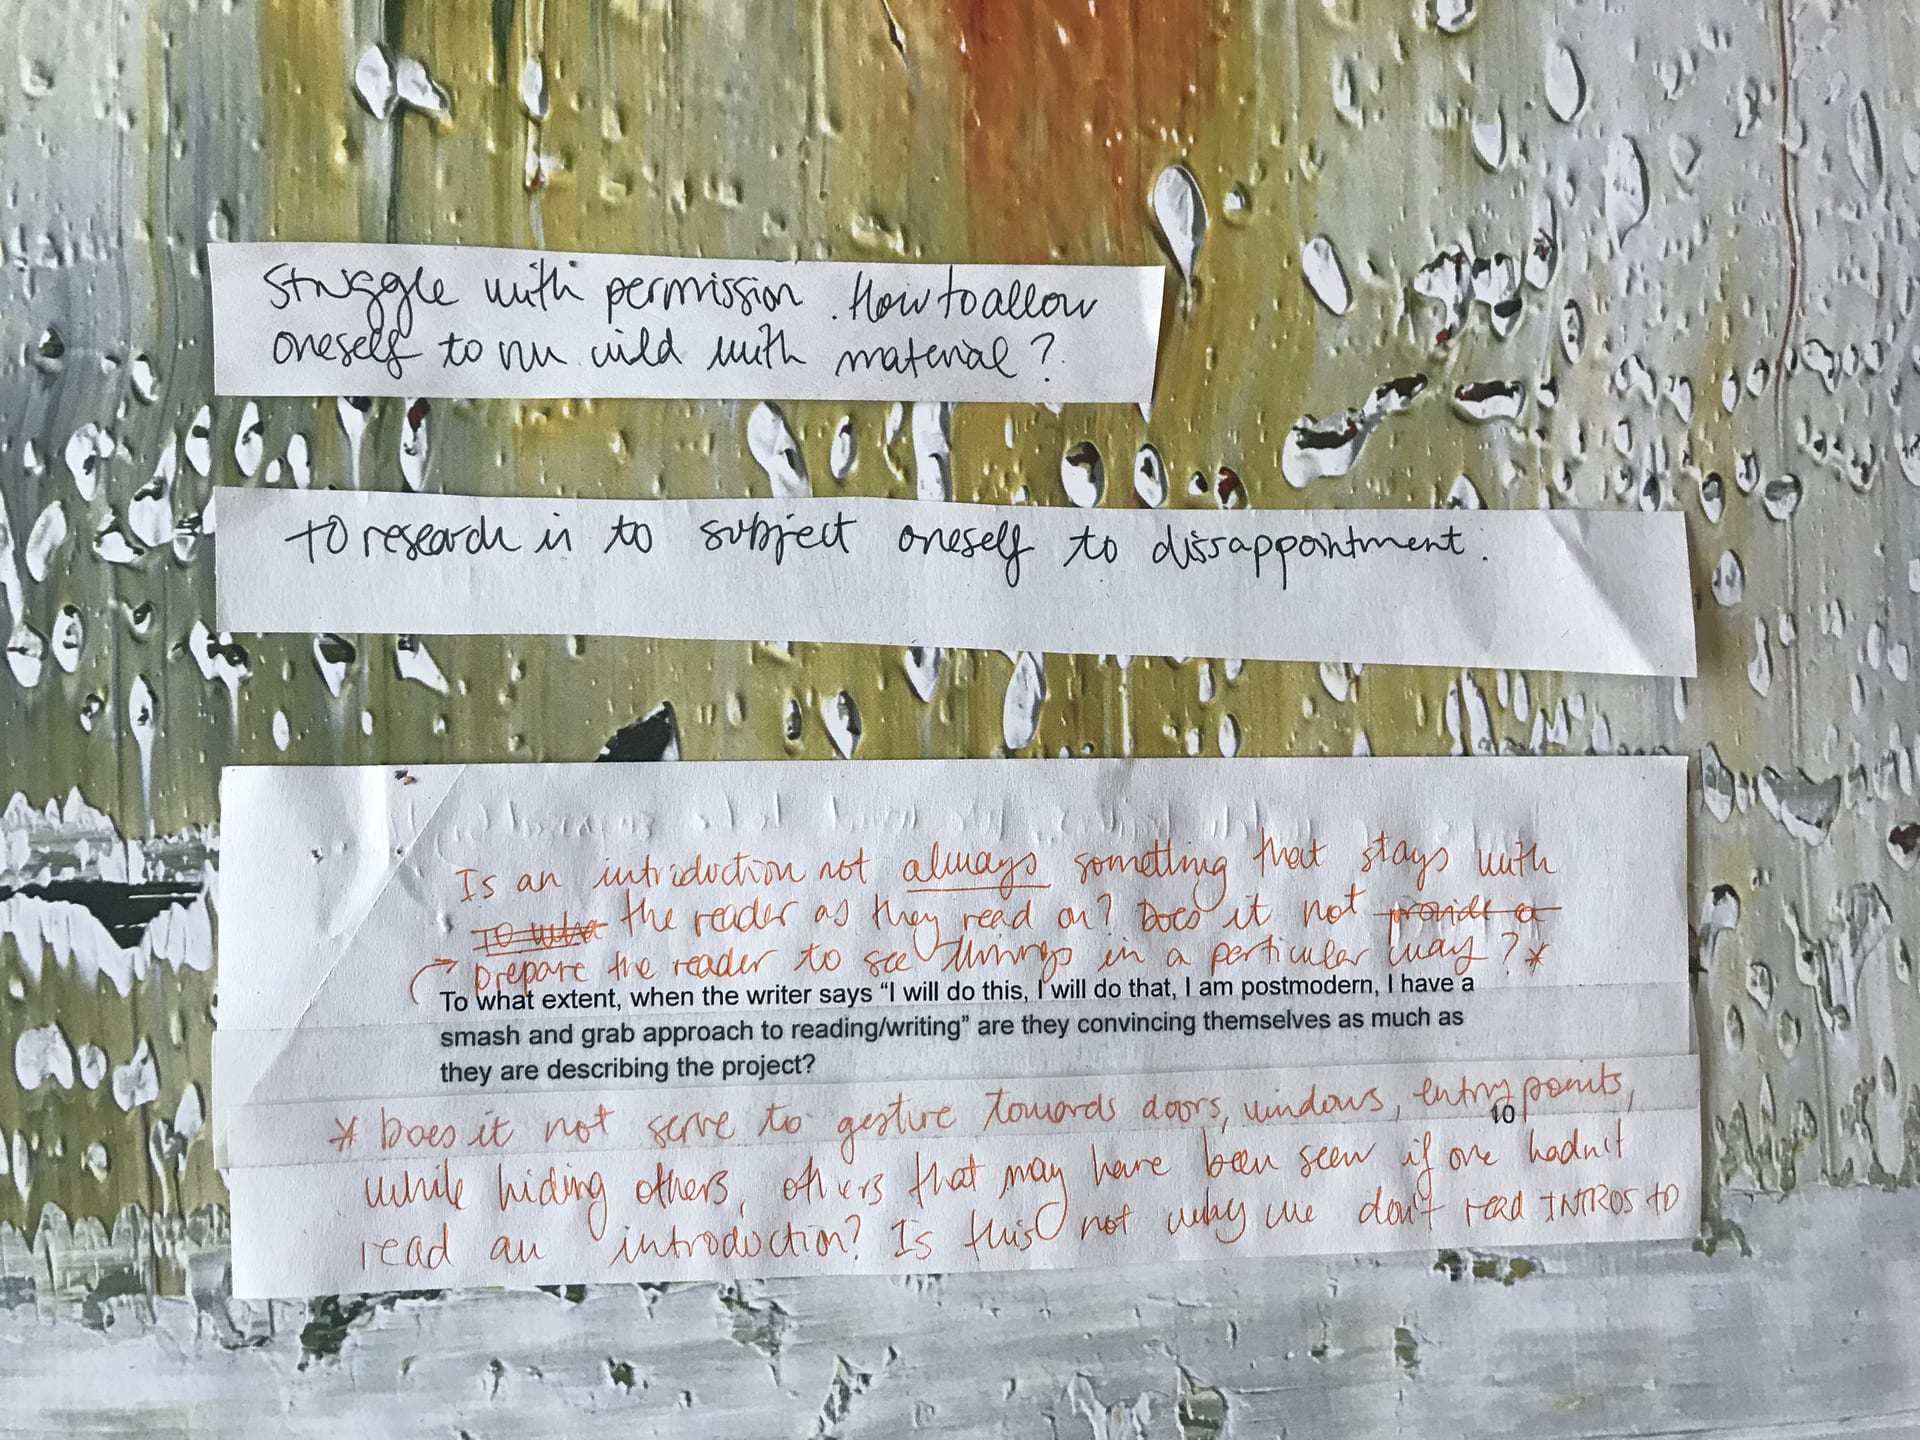 Struggle with permission. How to allow
oneself to run wild with material?
to research is to subject oneself to dissappointment.
Is an introduction not always something that stays with
the reader as they read on? Does it not provide a
prepare the reader to see things in a particular way? *
To what extent, when the writer says “I will do this, I will do that, I am postmodern, I have a
smash and grab approach to reading/writing” are they convincing themselves as much as
they are describing the project?
* Does it not serve to gesture towards doors, windows, entry points,
10
while hiding others, others that may have been seen if one hadn't
read an introduction? Is this not why we don't read INTROS to